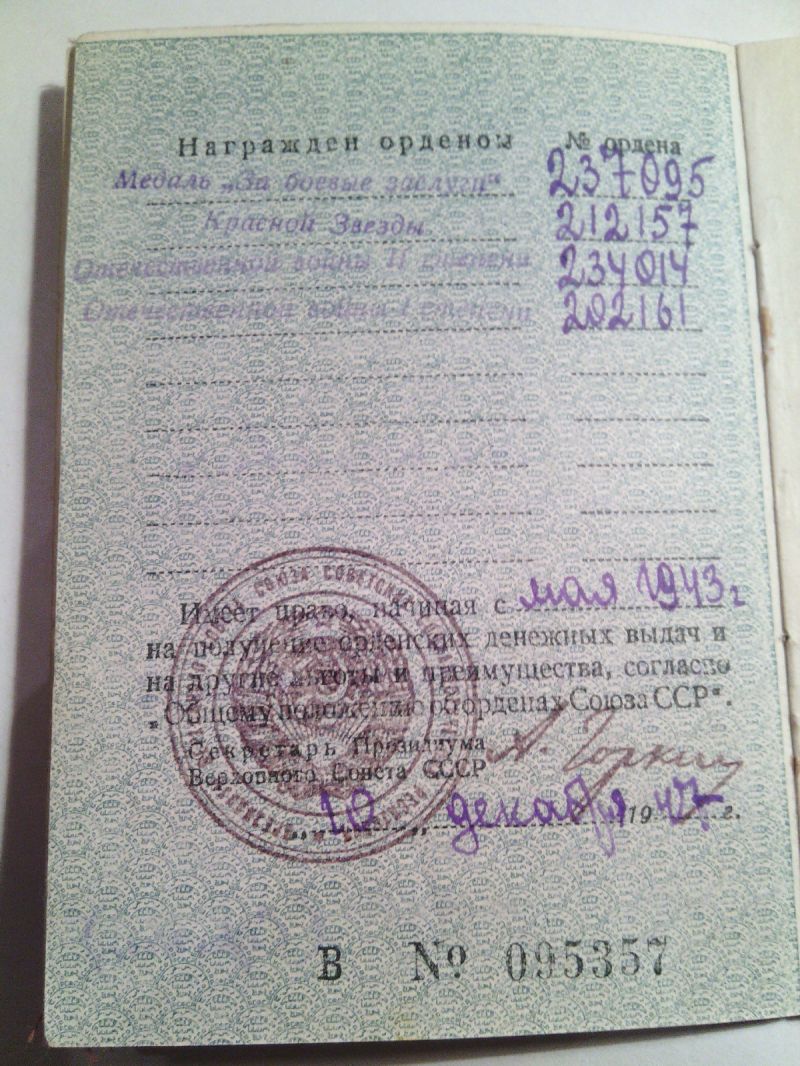 Награжден орденом № ордена
Медаль „За боевые заслуги“ 237095
Красной Звезды 212157
Отечественной войны II степени 234014
Отечественной войны I степени 202161
Имеет право, начиная с мая 1943 г
на получение орденских денежных выдач и
на другие льготы и преимущества, согласно
„Общему положению об орденах Союза ССР“.
Секретарь Президиума
Верховного Совета СССР
А. Горкин
„10„ декабря 1947 г.
В № 095357
СОЮЗА СОВЕТСКИХ